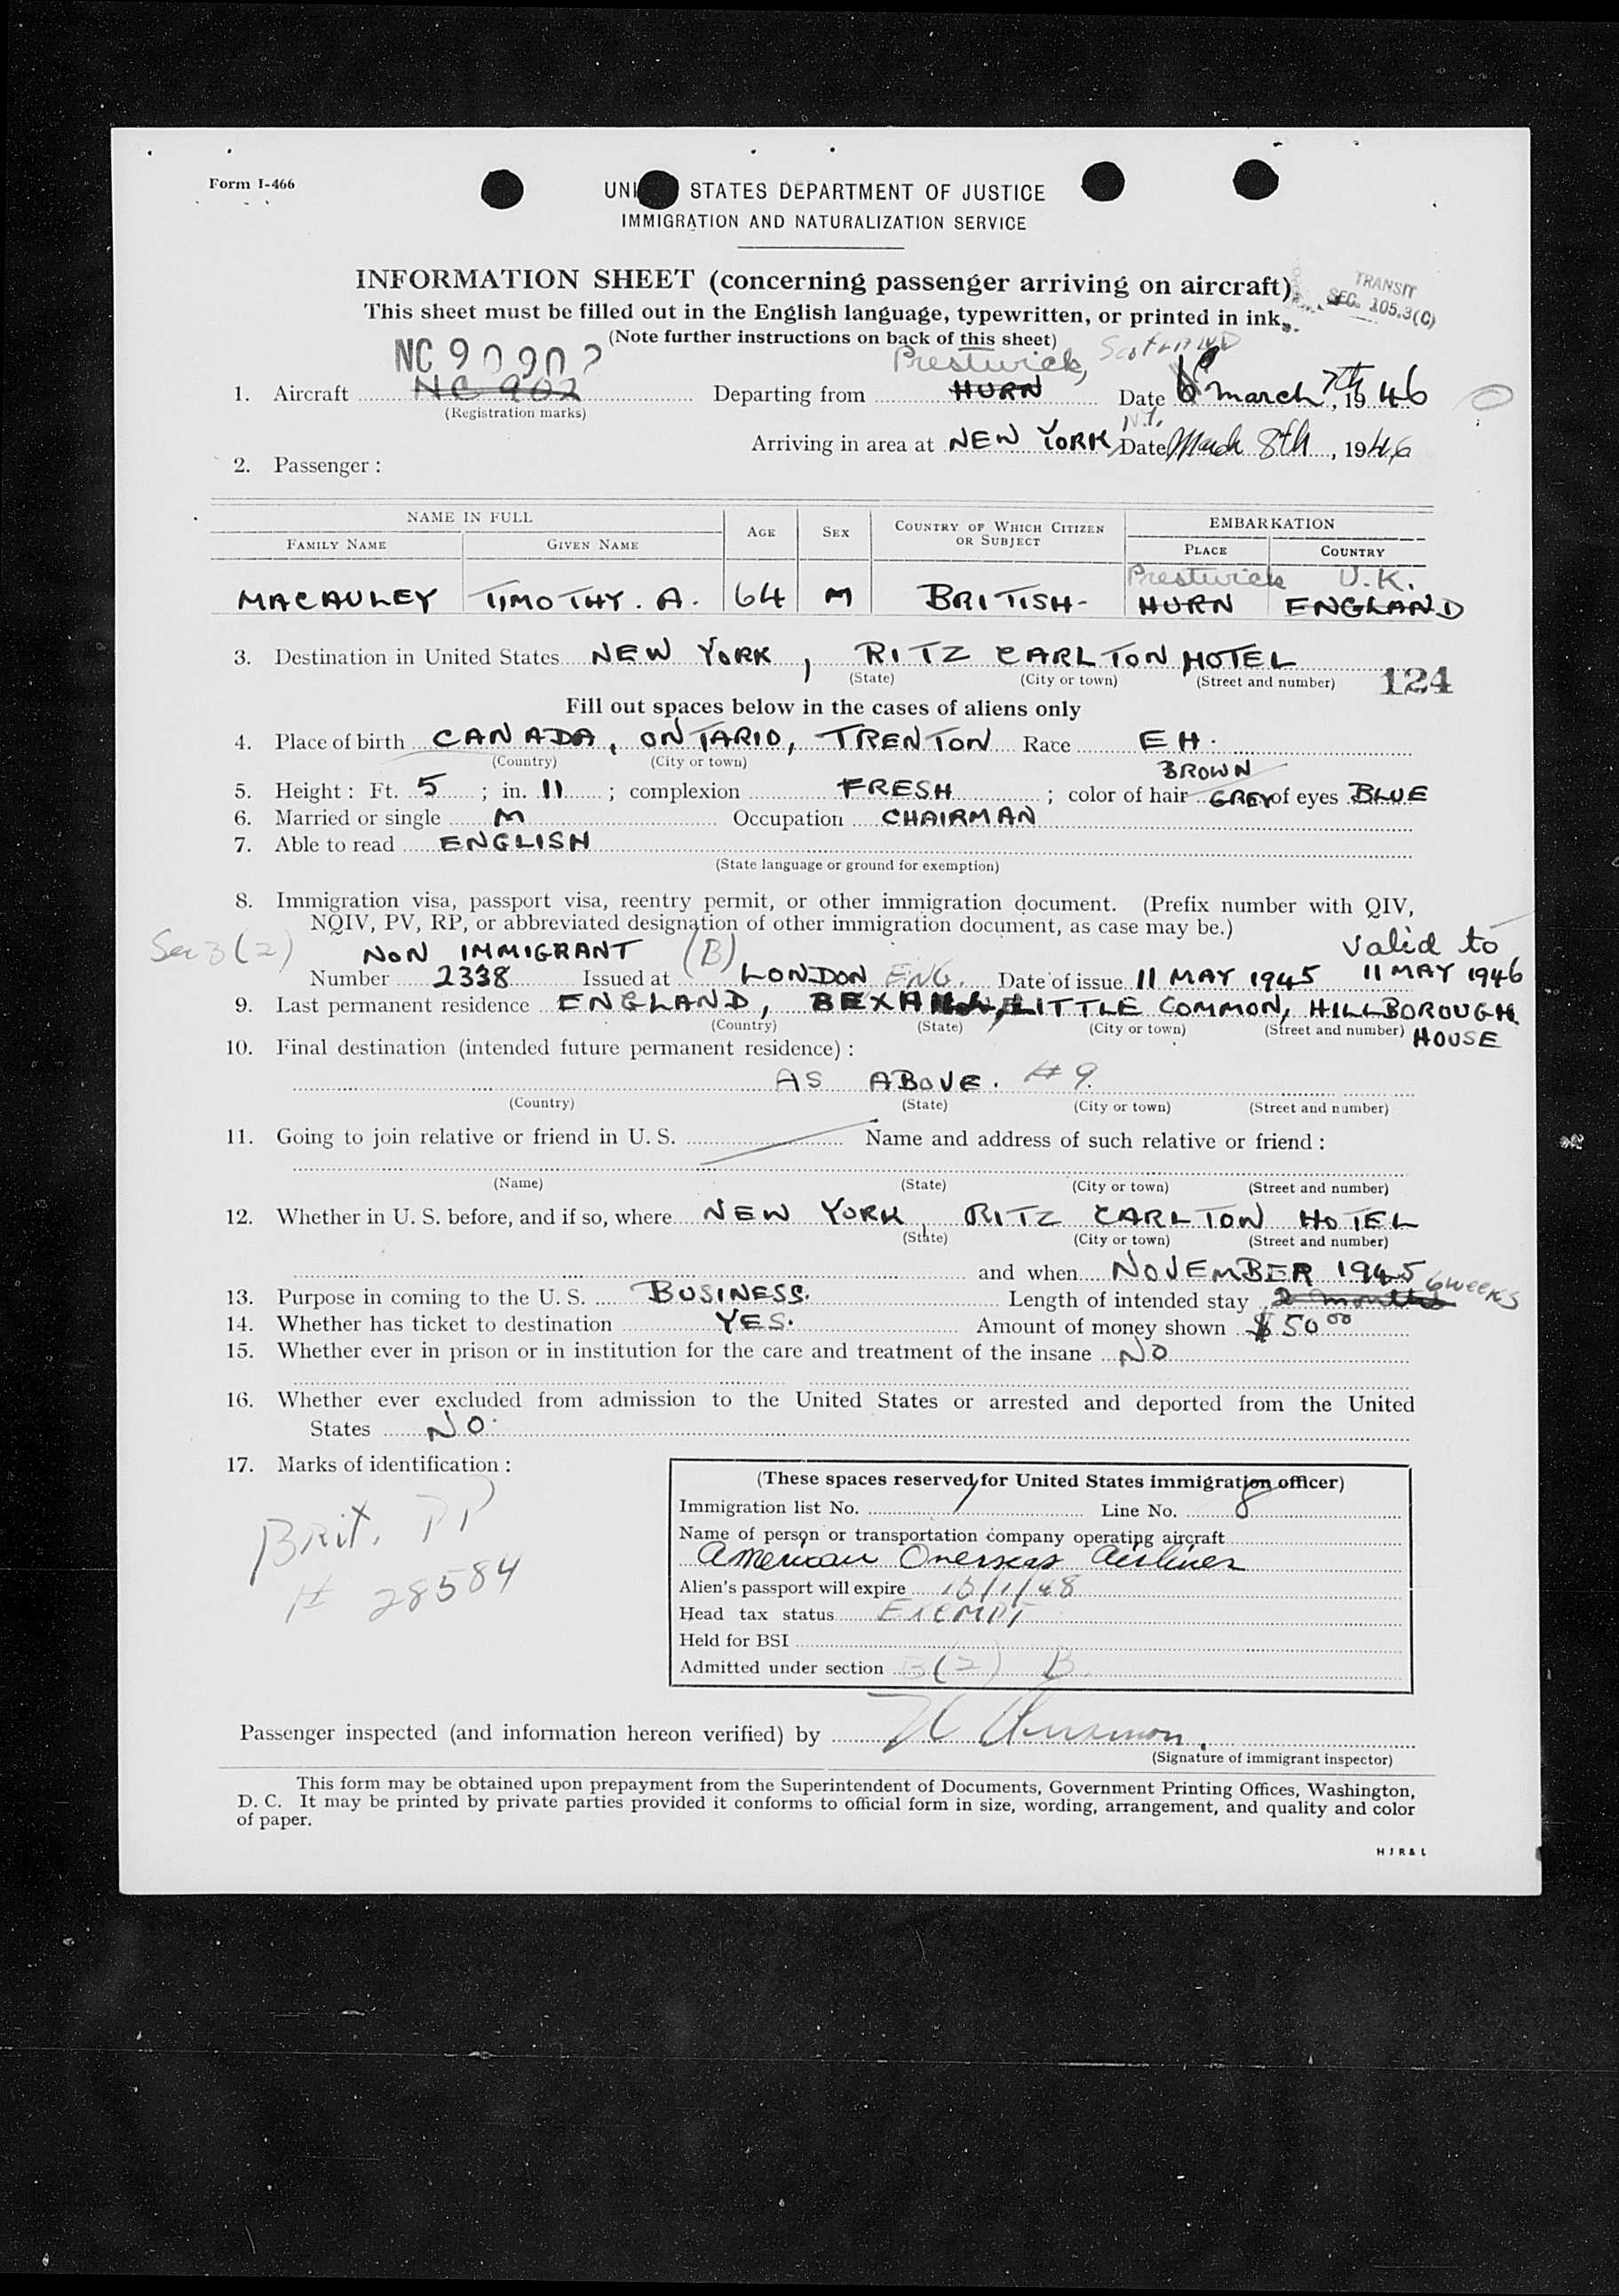 Form I-466
UNI STATES DEPARTMENT OF JUSTICE
IMMIGRATION AND NATURALIZATION SERVICE
INFORMATION SHEET (concerning passenger arriving on aircraft)
TRANSIT
SEC. 105.3(C)
This sheet must be filled out in the English language, typewritten, or printed in ink.
(Note further instructions on back of this sheet)
NC 90902 Prestwick, SCOTLAND
1. Aircraft NC 902 Departing from HURN Date March 7th, 1946
(Registration marks)
N.Y.
Arriving in area at NEW YORK, Date March 8th, 1946
2. Passenger :
NAME IN FULL AGE SEX COUNTRY OF WHICH CITIZEN OR SUBJECT EMBARKATION
FAMILY NAME GIVEN NAME PLACE COUNTRY
Prestwick U.K.
MACAULEY TIMOTHY. A. 64 M BRITISH- HURN ENGLAND
3. Destination in United States NEW YORK, RITZ CARLTON HOTEL
(State) (City or town) (Street and number)
124
Fill out spaces below in the cases of aliens only
4. Place of birth CANADA, ONTARIO, TRENTON Race EH.
(Country) (City or town)
BROWN
5. Height: Ft. 5 ; in. 11 ; complexion FRESH ; color of hair GREY of eyes BLUE
6. Married or single M Occupation CHAIRMAN
7. Able to read ENGLISH
(State language or ground for exemption)
8. Immigration visa, passport visa, reentry permit, or other immigration document. (Prefix number with QIV,
NQIV, PV, RP, or abbreviated designation of other immigration document, as case may be.)
Sec 3 (2) NON IMMIGRANT (B) valid to
Number 2338 Issued at LONDON ENG. Date of issue 11 MAY 1945 11 MAY 1946
9. Last permanent residence ENGLAND, LITTLE COMMON, HILLBOROUGH
(Country) (State) (City or town) (Street and number) HOUSE
10. Final destination (intended future permanent residence) :
AS ABOVE. #9.
(Country) (State) (City or town) (Street and number)
11. Going to join relative or friend in U. S. Name and address of such relative or friend :
(Name) (State) (City or town) (Street and number)
12. Whether in U. S. before, and if so, where NEW YORK, RITZ CARLTON HOTEL
(State) (City or town) (Street and number)
and when NOVEMBER 1945
13. Purpose in coming to the U. S. BUSINESS. Length of intended stay 2 months 6 weeks
14. Whether has ticket to destination YES. Amount of money shown $50 00
15. Whether ever in prison or in institution for the care and treatment of the insane NO
16. Whether ever excluded from admission to the United States or arrested and deported from the United
States NO.
17. Marks of identification :
Brit. PP
# 28584
(These spaces reserved for United States immigration officer)
Immigration list No. 1 Line No. 8
Name of person or transportation company operating aircraft
American Overseas Airlines
Alien's passport will expire /1/48
Head tax status EXEMPT
Held for BSI
Admitted under section 3(2) B
Passenger inspected (and information hereon verified) by
(Signature of immigrant inspector)
This form may be obtained upon prepayment from the Superintendent of Documents, Government Printing Offices, Washington,
D. C. It may be printed by private parties provided it conforms to official form in size, wording, arrangement, and quality and color
of paper.
H J R & L